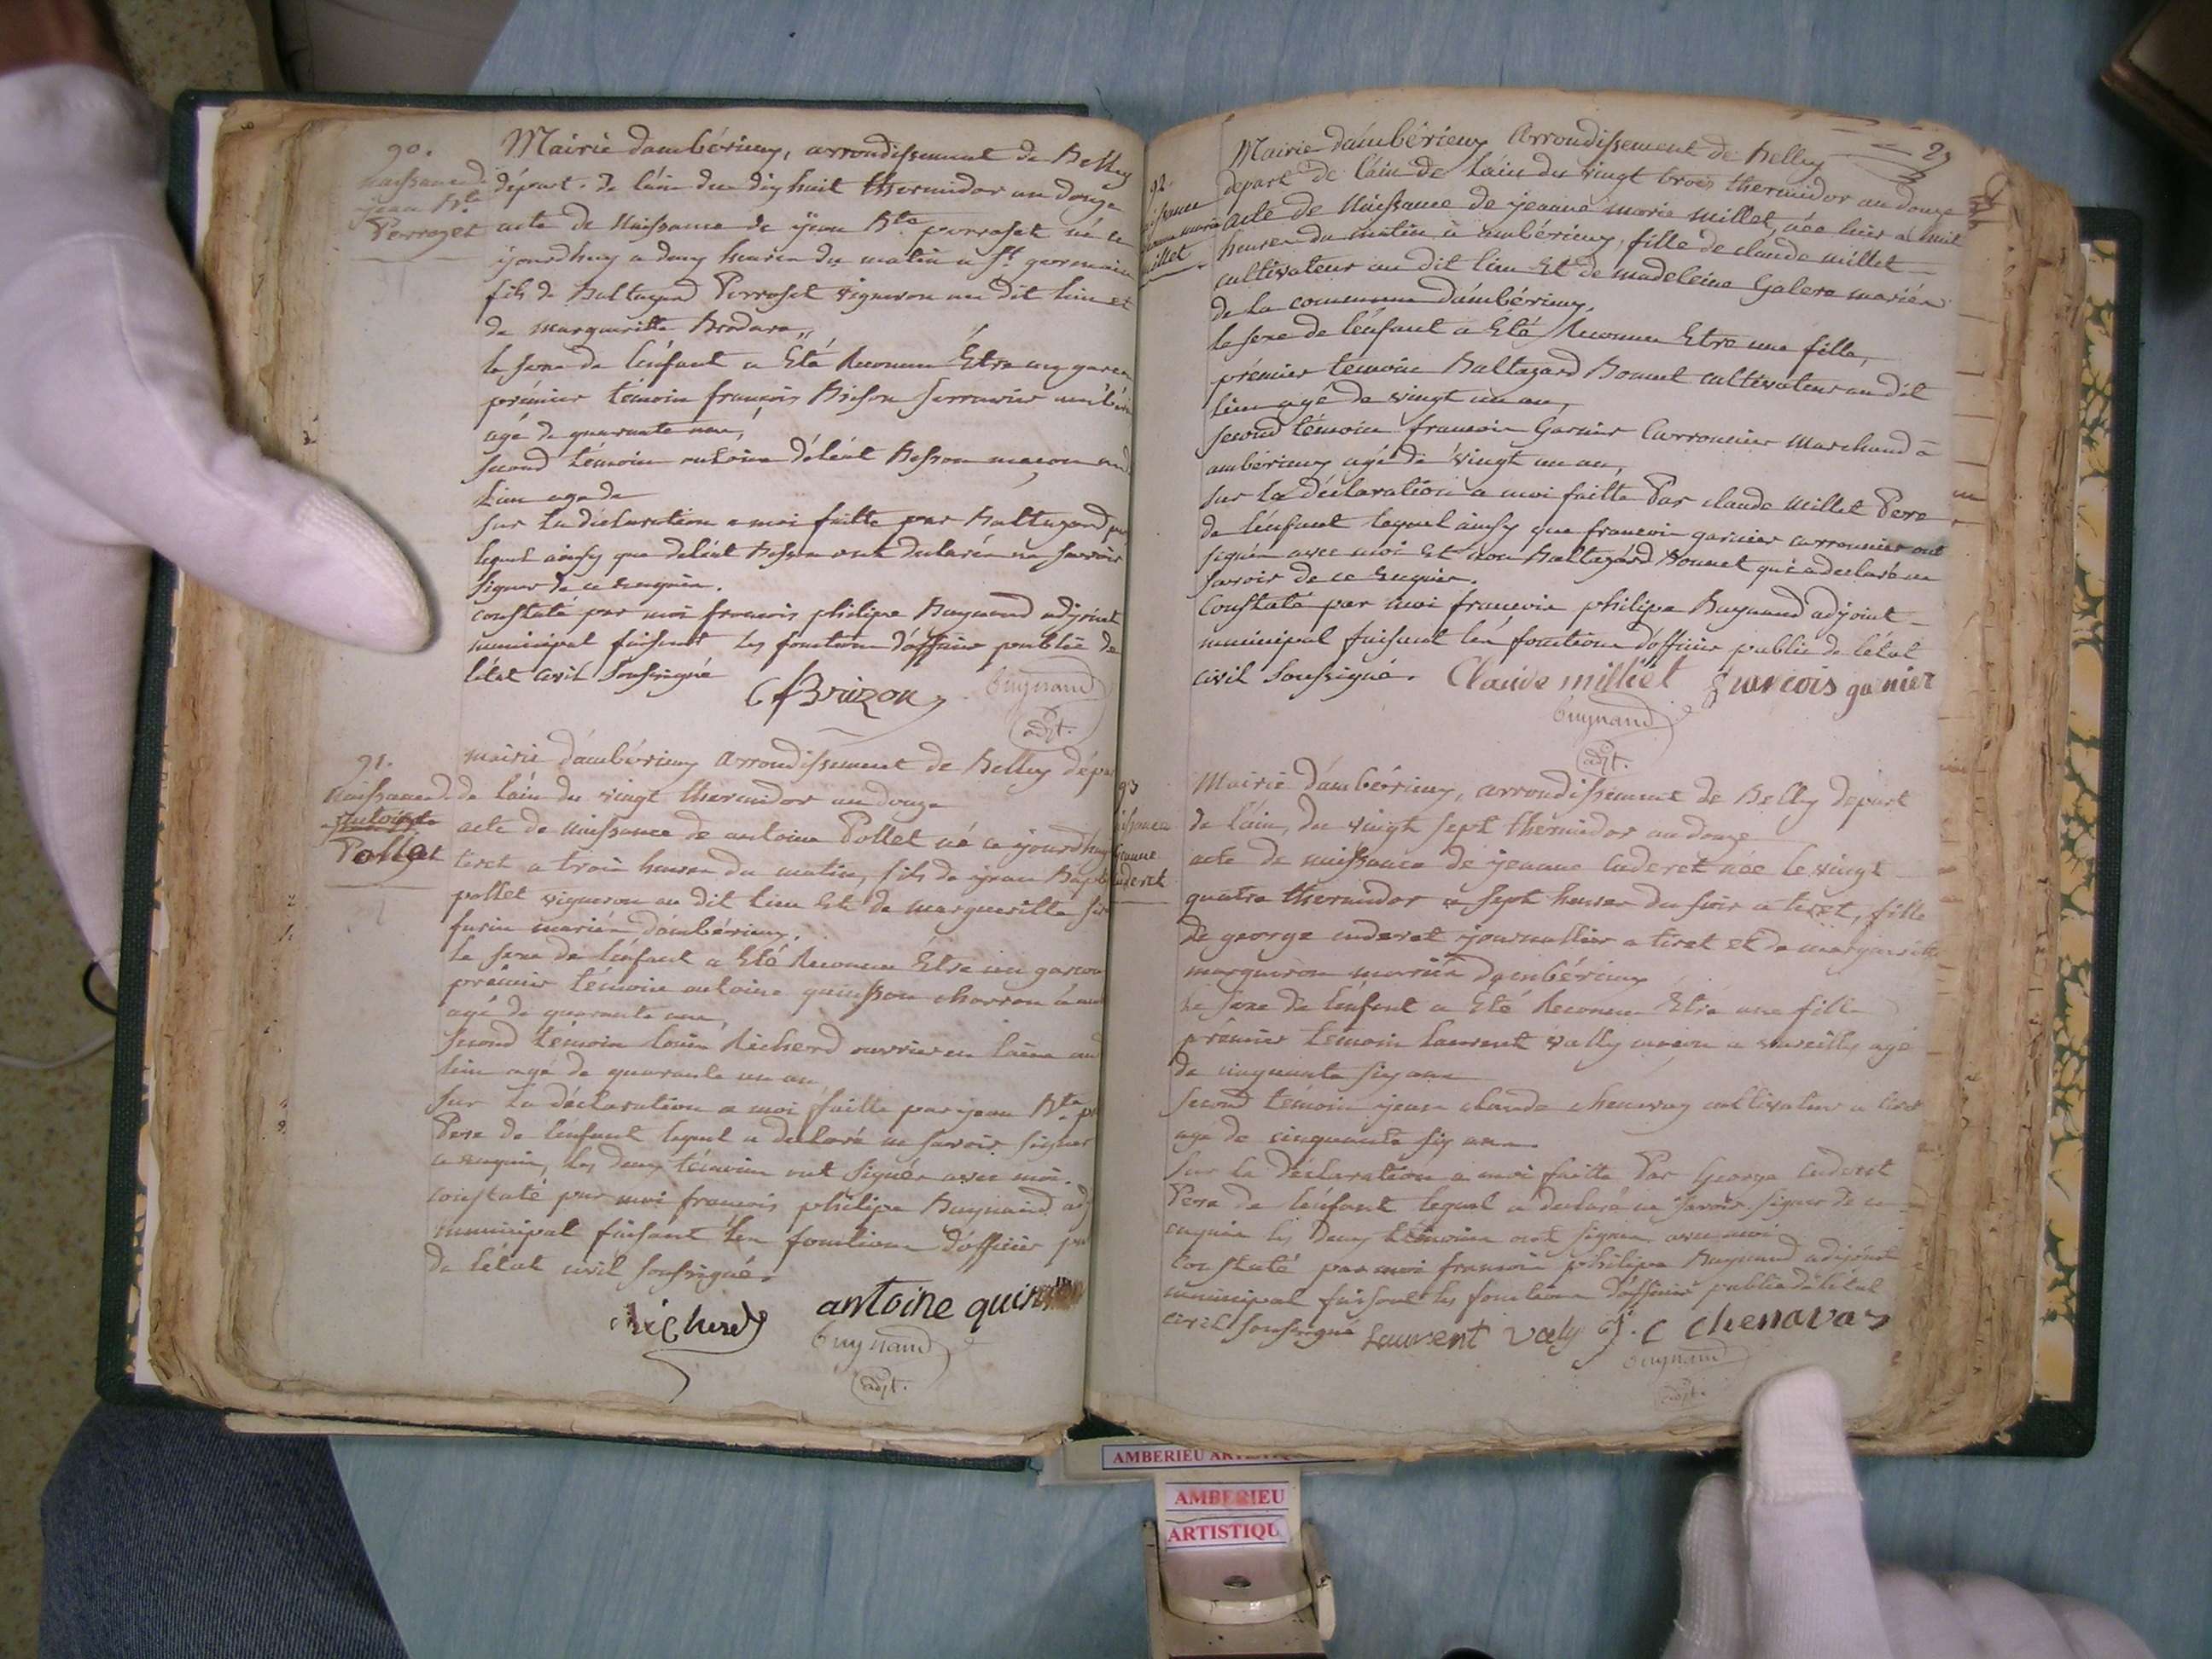 90.
naissance de
jean Bte
Perrozet
Mairie dambérieux, arrondissement de Belley
départ. de láin du dix huit thermidor an douze
acte de Naissance de jean Bte perroset né ce
jourdhuy a deux heures du matin a St germain
fils de Baltazard Perroset vigneron au dit lieu et
de margueritte
le sexe de lénfant a Eté Reconnu Etre un garcon
prémier témoin francois Brison serrurier
agé de quarante ans,
second témoin antoine déléat Besson macon au
lieu agé de
sur la déclaration a moi faitte par Baltazard
lequel ainsy que deléat Besson ont declarés ne savoir
signer de ce enquis.
constaté par moi francois philipe Buynand adjoint
municipal faisant les fonctions dófficier publié de
létat civil soussigné
Brizon
Buynand
adjt.
91.
Naissance d.
Antoine
Pollet
mairie dámbérieux arrondissement de Belley dépa
de láin du vingt thermidor an douze
acte de Naissance de antoine Pollet né ce jourdhuy
tiret a trois heures du matin, fils de jean Bapt
pollet vigneron au dit lieu Et de margueritte
mariés dámbérieux.
le sexe de lénfant a Eté Reconnu Etre un garcon
prémier témoin antoine quinsson charron
agé de quarante ans,
second témoin louis Richerd ouvrier en laine au
lieu agé de quarante un an
sur la déclaration a moi faitte par jean Bte
Pere de lénfant lequel a declaré ne savoir signer
ce enquis, les deux témoins ont signés avec moi.
constaté par moi francois philipe Buynand adj
municipal faisant les fonctions dófficier pu
de létat civil soussigné.
Richerd
antoine quinsson
Buynand
adjt.
29
92.
issance
jeanne marie
millet
Mairie dámbérieux Arrondissement de Belley
départ de láin de láin du vingt trois thermidor an douze
acte de Naissance de jeanne marie millet, née hier a huit
heures du matin a ambérieux, fille de claude millet
cultivateur au dit lieu Et de madeleine Galera mariés
de la commune dámbérieux.
le sexe de lénfant a Eté Reconnu Etre une fille,
prémier temoin Baltazard Bonnet cultivateur au dit
lieu agé de vingt un an,
second témoin francois Garnier Carronnier Marchand à
ambérieux agé de vingt un an,
sur la déclaration a moi faitte Par claude Millet Pere
de lénfant lequel ainsy que francois garnier carronnier ont
signés avec moi Et non Baltazard Bonnet qui a declaré ne
savoir de ce Enquis.
Constaté par moi francois philipe Buynand adjoint
municipal faisant les fonctions dófficier public de létat
civil soussigné.
Claude milliet
francois garnier
Buynand
adjt.
93
issance
jeanne
uderet
Mairie dámbérieux, arrondissement de Belley départ
de láin, du vingt sept thermidor an douze
acte de naissance de jeanne Cuderet née le vingt
quatre thermidor a sept heures du soir a tiret, fille
de george cuderet journallier a tiret et de marguerite
mariés dambérieux
le sexe de lénfant a Eté Reconnu Etre une fille
prémier temoin laurent vally macon a vareilles agé
de cinquante six ans
second témoin jean claude chenavaz cultivateur a tiret
agé de cinquante six ans.
sur la déclaration a moi faitte Par George Cuderet
Pere de lénfant lequel a declaré ne savoir signer de ce
enquis les Deux témoins ont signés avec moi
Constaté par moi francois philipe Buynand adjoint
municipal faisant les fonctions dófficier public de létat
civil soussigné
Laurent valy
J. C chenavaz
Buynand
adjt.
AMBERIEU ARTISTIQUE
AMBERIEU
ARTISTIQU